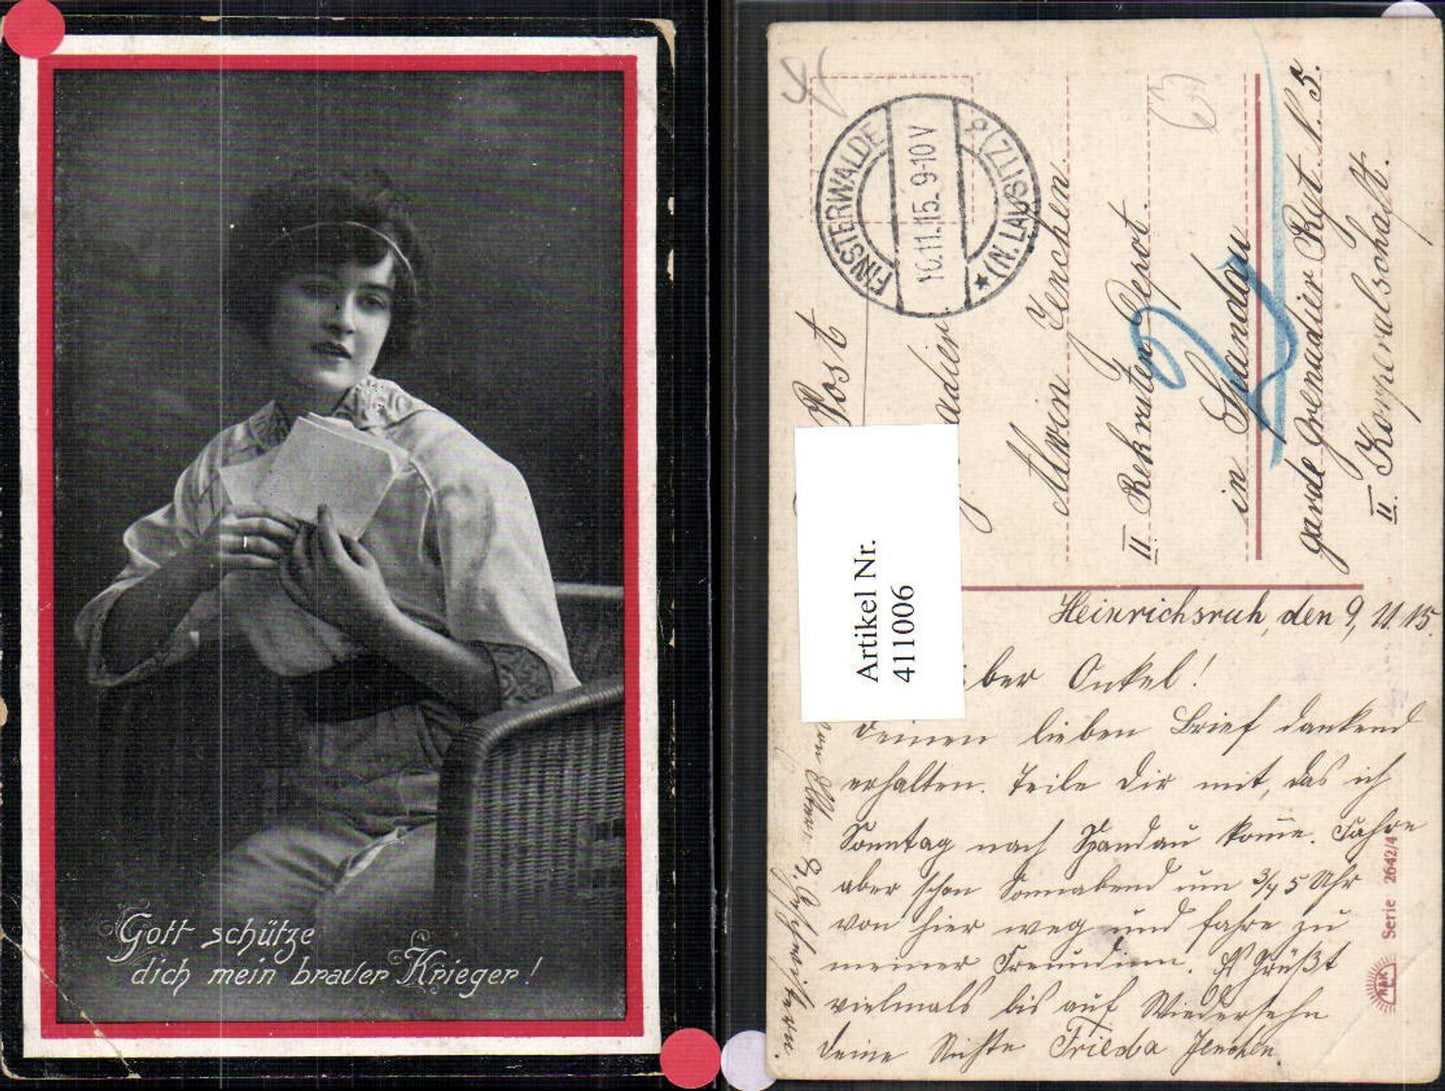 Gott schütze
dich mein braver Krieger!
FINSTERWALDE
(N. LAUSITZ)
10.11.15. 9-10 V
Post
adier.
Alwin Jenchen.
II Rekruten Depot.
in Spandau
garde Grenadier Rgt. N. 5.
II Korperalschaft.
2
Artikel Nr.
411006
Heinrichsruh, den 9, 11. 15.
ber Onkel!
Deinen lieben Brief dankend
erhalten. Teile Dir mit, das ich
Sonntag nach Spandau komme. Fahre
aber schon Sonnabend um 3/4 5 Uhr
von hier weg und fahre zu
meiner Freundinn. Es Grüßt
vielmals bis auf Wiedersehn
deine Nichte Frieda Jenchen.
Geschwistern.
Serie 2642/4